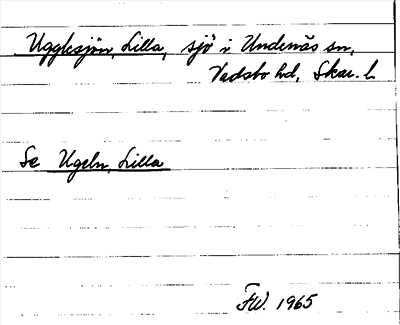 Ugglesjön, Lilla, sjö i Undenäs sn,
Vadsbo hd, Skar. l.
Se Ugeln, Lilla
F.W. 1965